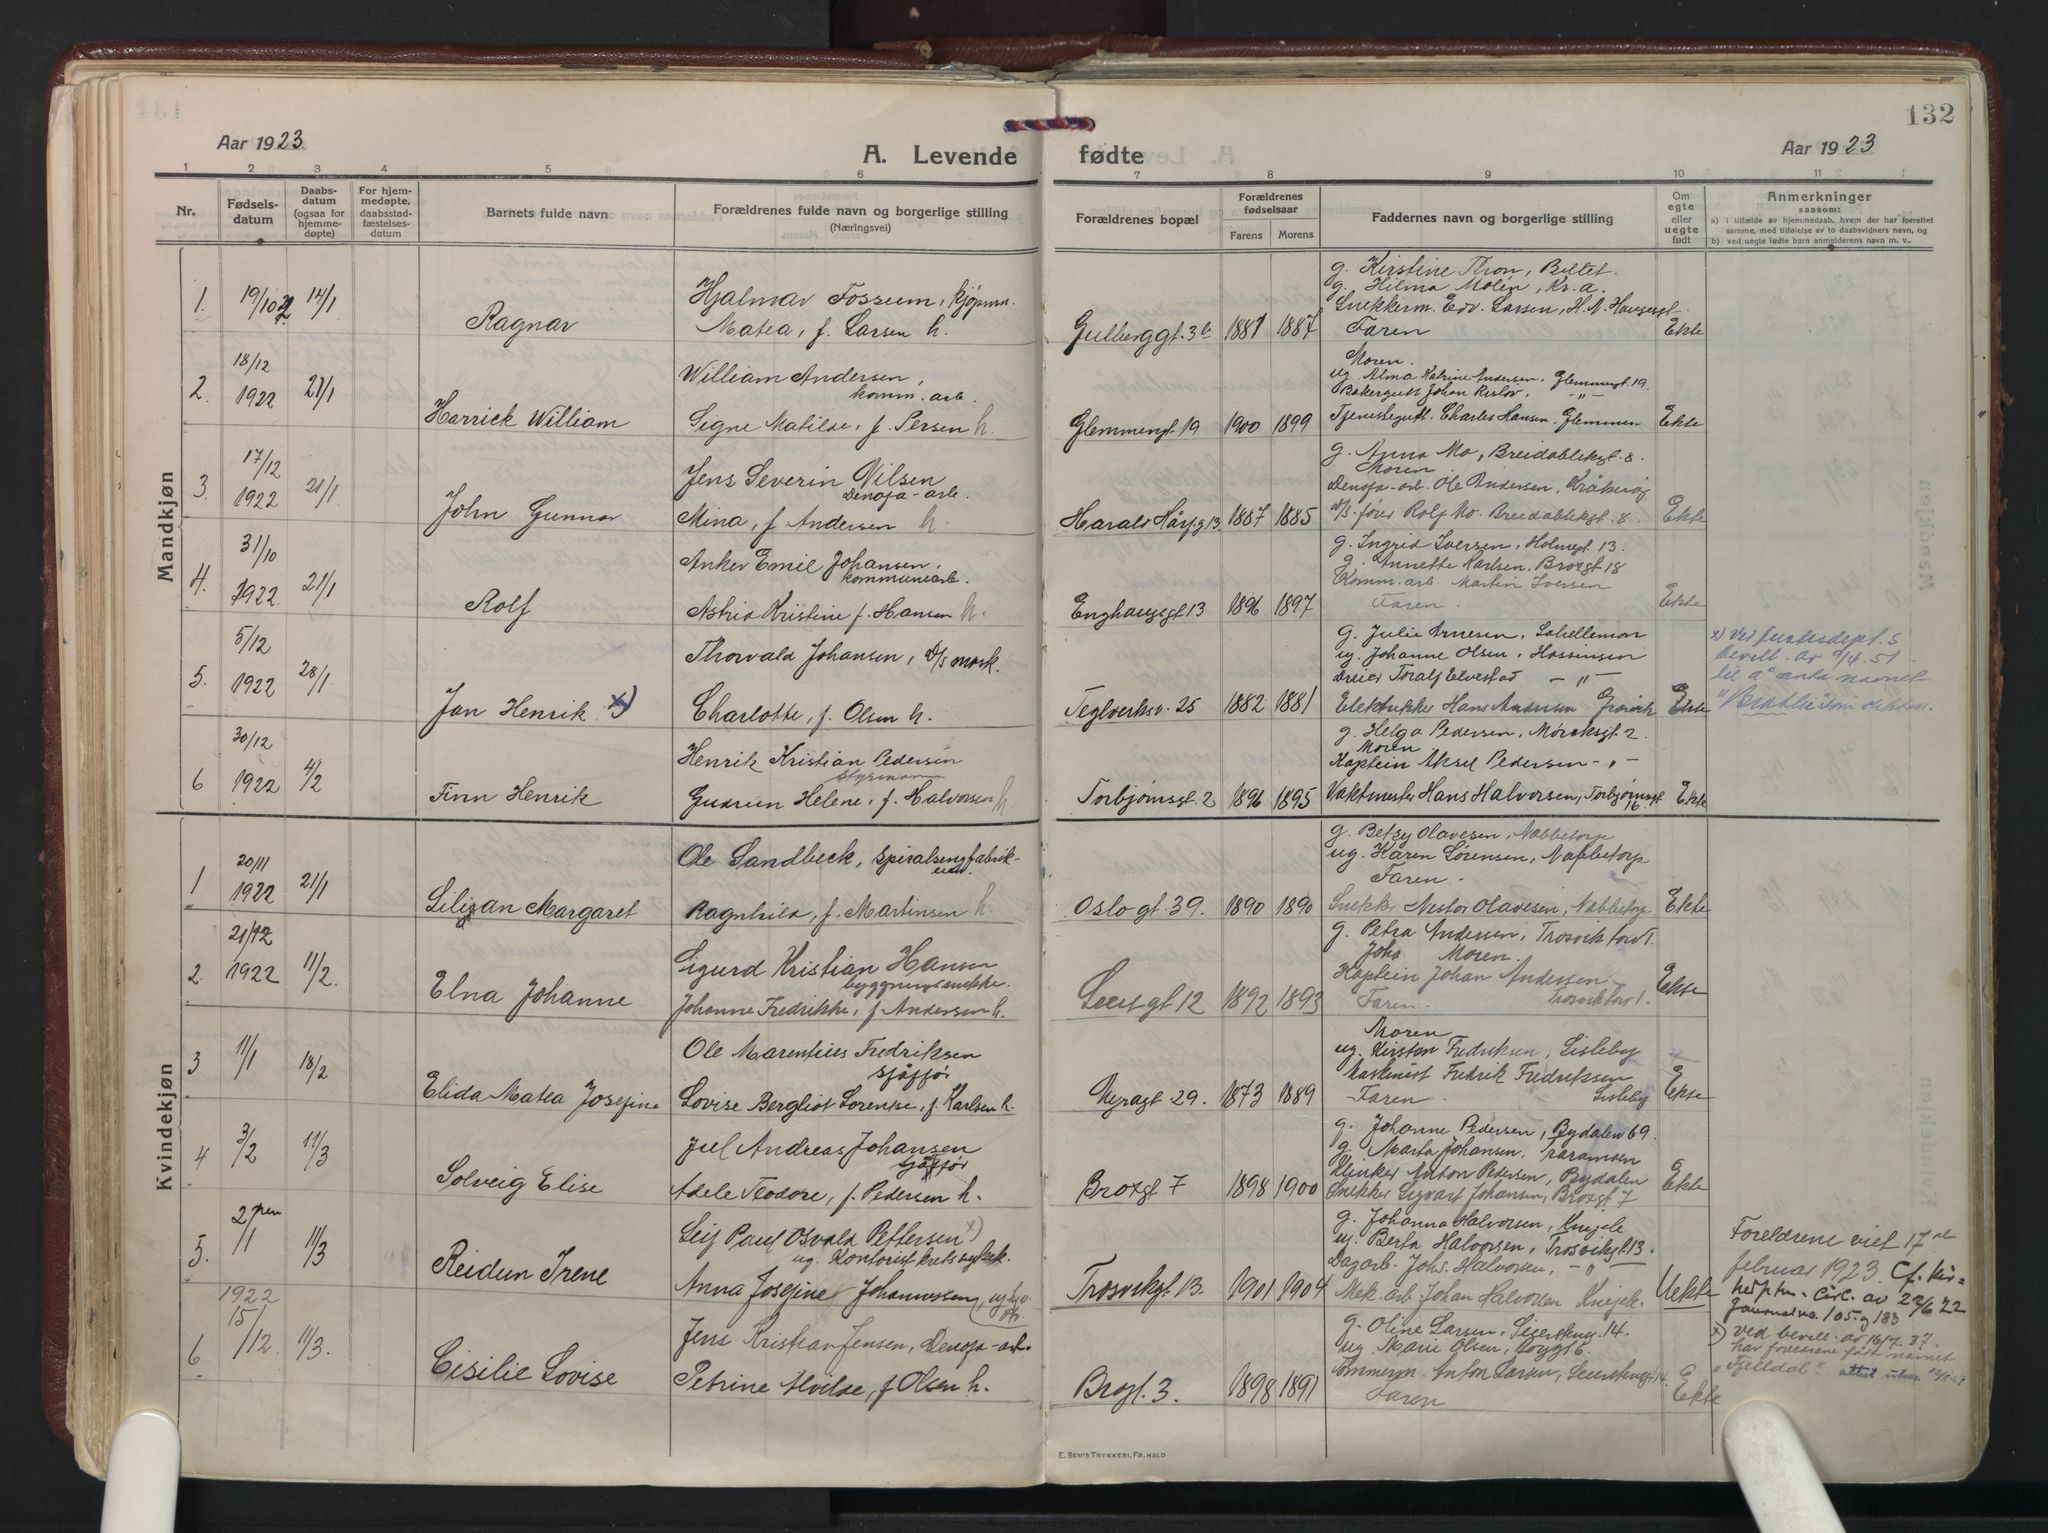 132
Aar 1923
A. Levende fødte
Aar 1923
1 2 3 4 5 6 7 8 9 10 11
Nr.
Fødsels-
datum
Daabs-
datum
(ogsaa for
hjemme-
døpte)
For hjem-
medøpte,
daabsstad-
fæstelses-
datum
Barnets fulde navn
Forældrenes fulde navn og borgerlige stilling
(Næringsvei)
Forældrenes bopæl
Forældrenes
fødselsaar
Farens Morens
Faddernes navn og borgerlige stilling
Om
egte
eller
uegte
født
Anmerkninger
saasom:
a) i tilfælde av hjemmedaab, hvem der har forrettet
samme, med tilføielse av to daabsvidners navn, og
b) ved uegte fødte barn anmelderens navn m. v.
Mandkjøn
1. 19/10 22 14/1 Ragnar
Hjalmar Fossum, kjøpmn.
Matea, f. Larsen h.
Gulberggt. 3b 1881 1887
g. Kirstine Thon, Beltet.
g. Hilma Molin, Kr.a.
Snekkerm. Edv. Larsen, H.N. Haugesgt.
Faren
Ekte
2. 18/12 1922 21/1 Harrick William
William Andersen,
komm. arb.
Signe Matilde, f. Persen h.
Glemmengt 19 1900 1899
Moren.
ug. Alma Katrine Andersen, Glemmengt 19.
Bakergutt Johan Kislov, -"-
Tjenestegutt. Charles Hansen. Glemmen
Ekte
3. 17/12 1922 21/1 John Gunnar
Jens Severin Nilsen
Denofa-arb.
Mina, f. Andersen h.
Harald Hårf.g 13 1887 1885
g. Anna Mo, Breidablikgt. 8.
Moren
Denofa-arb. Ole Andersen, Kråkerøy
d/s. fører Rolf Mo. Breidablikgt. 8
Ekte
4. 31/10 1922. 21/1 Rolf
Anker Emil Johansen,
kommunearb.
Astrid Kristine f. Hansen h.
Enghaugsgt 13 1896 1897
g. Ingrid Iversen, Holmegt. 13.
g. Annette Karlsen. Brogt 18
Komm.arb. Martin Iversen
Faren.
Ekte
5. 5/12 1922 28/1 Jan Henrik x)
Thorvald Johansen, d/s mask.
Charlotte, f. Olsen h.
Teglverksv. 25 1882 1881
g. Julie Arnesen, Lahellemon
ug. Johanne Olsen, Hassingen
Dreier Toralf Elvestad -"-
Elektrikker Hans Andersen Greåker
Ekte
x) Ved Justisdept.s
bevill. av 9/4. 51
til å anta navnet
"Bratlie" som slektsn.
6 30/12 1922 4/2 Finn Henrik
Henrik Kristian Pedersen
styrmann
Gudrun Helene, f. Halvorsen h
Torbjørnsgt. 2 1896 1895
g. Helga Pedersen, Mørcksgt 2.
Moren
Kaptein Aksel Pedersen -"-
Vaktmester Hans Halvorsen, Torbjørnsgt 16.
Ekte
Kvindekjøn
1 20/11 1922 21/1 Lilizan Margaret
Ole Sandbeck, spiralsengfabrik-
Ragnhild, f. Martinsen h.
Oslo gt 39. 1890 1890
g. Betsy Olavesen, Nabbetorp
ug. Karen Sørensen, Nabbetorp
Faren.
Snekker Nestor Olavesen, Nabbetorp
Ekte
2. 21/12 1922 11/2. Elna Johanne
Sigurd Kristian Hansen
byggningssnekke.
Johanne Fredrikke, f. Andersen h.
Leiesgt 12 1892 1893
g. Petra Andersen, Trosvik tord 1.
Moren.
Kaptein Johan Andersen
Faren. Trosvik tord 1.
Ekte
3 11/1 18/2 Elida Matea Josefine
Ole Marentius Fredriksen
sjåffør
Lovise Bergliot Lorense, f. Karlsen h.
Nyragt 29. 1873 1889
Moren
ug. Kirsten Fredriksen, Lisleby
Maskinist Fredrik Fredriksen
Faren. Lisleby
Ekte
4 3/2 11/3 Solveig Elise
Juel Andreas Johansen
sjåffør
Adele Teodore, f. Pedersen h.
Brogt 7 1898 1900
g. Johanne Pedersen, Bydalen 69.
g. Marta Johansen,
Klinker Anton Pedersen, Bydalen
Snekker Sigvart Johansen, Brogt. 7
Ekte
5. 2/1 11/3 Reidun Irene
Leif Paul Osvald Pettersen x)
ug. Kontorist kretssykek.
Anna Josefine Johannessen,
Trosvikgt 13. 1901 1904
g. Johanna Halvorsen, Kniple
ug. Berta Halvorsen, Trosvikgt 13.
Dagarb. Johs. Halvorsen, -"-
Mek arb Johan Halvorsen Kniple.
Uekte
Foreldrene viet 17de
februar 1923. Cf. Kir-
kedptm. Circ. av 22/6 22
Journalno. 105 og 183
x) ved bevill. av 16/7. 37.
har foreldrene fått navnet
"Fjelldal"
6 1922 15/12. 11/3. Cisilie Lovise
Jens Kristian Jensen, Denofa-arb.
Petrine Alvilde, f Olsen h.
Brogt. 3. 1898 1891
g. Oline Larsen, 14.
ug. Marie Olsen, Brygt 6.
Tømmerm. Anton Larsen, 14.
Faren
Ekte
E. SEM'S TRYKKERI, FR.HALD